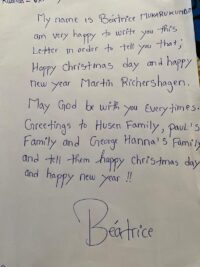 My name is Béatrice MUKARUKUNDO
am very happy to write you this
Letter in order to tell you that;
Happy christmas day and happy
new year Martin Richershagen.
May God be with you Everytimes.
Greetings to Husen Family, paul's
Family and George Hanna's Family
and tell them happy christmas day
and happy new year !!
Béatrice